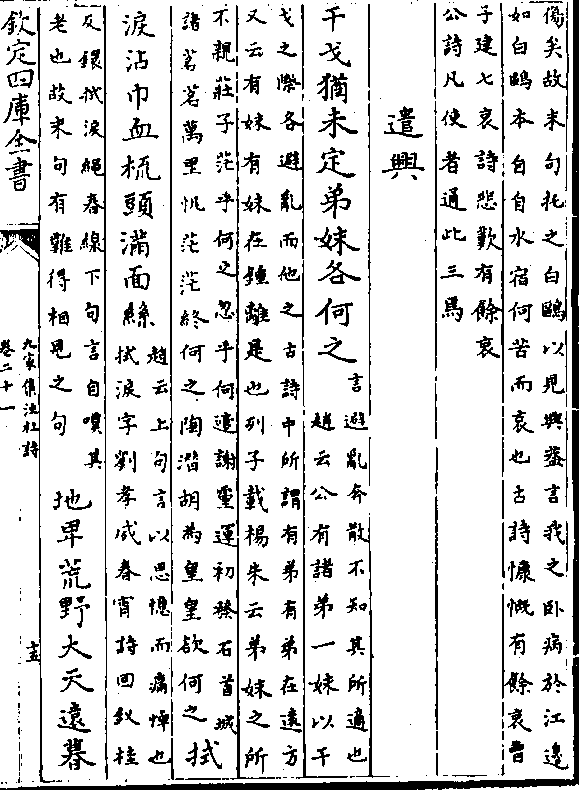 傷矣故末句托之白鷗以見興蓋言我之卧病於江邊
如白鷗本自自水宿何苦而哀也古詩慷慨有餘哀曹
子建七哀詩悲歎有餘哀
公詩凡使者通此三焉
遣興
干戈猶未定弟妹各何之
言避亂奔散不知其所適也
趙云公有諸弟一妹以干
戈之際各避亂而他之古詩中所謂有弟有弟在遠方
又云有妹有妹在鍾離是也列子載楊朱云弟妹之所
不親莊子茫乎何之忽乎何適謝靈運初發石首城
諸茗茗萬里帆茫茫終何之陶潛胡為皇皇欲何之
拭
淚沾巾血梳頭滿面絲
趙云上句言以思憶而痛悼也
拭淚字劉孝威春宵詩回釵挂
反鐶拭淚繩春線下句言自嘆其
老也故末句有難得相見之句
地卑荒野大天遠暮
欽定四庫全書
九家集注杜詩
卷二十一